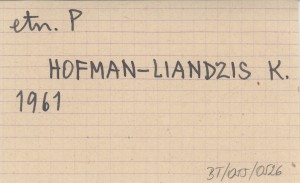 etn. P
HOFMAN-LIANDZIS K.
1961
BT/055/0526